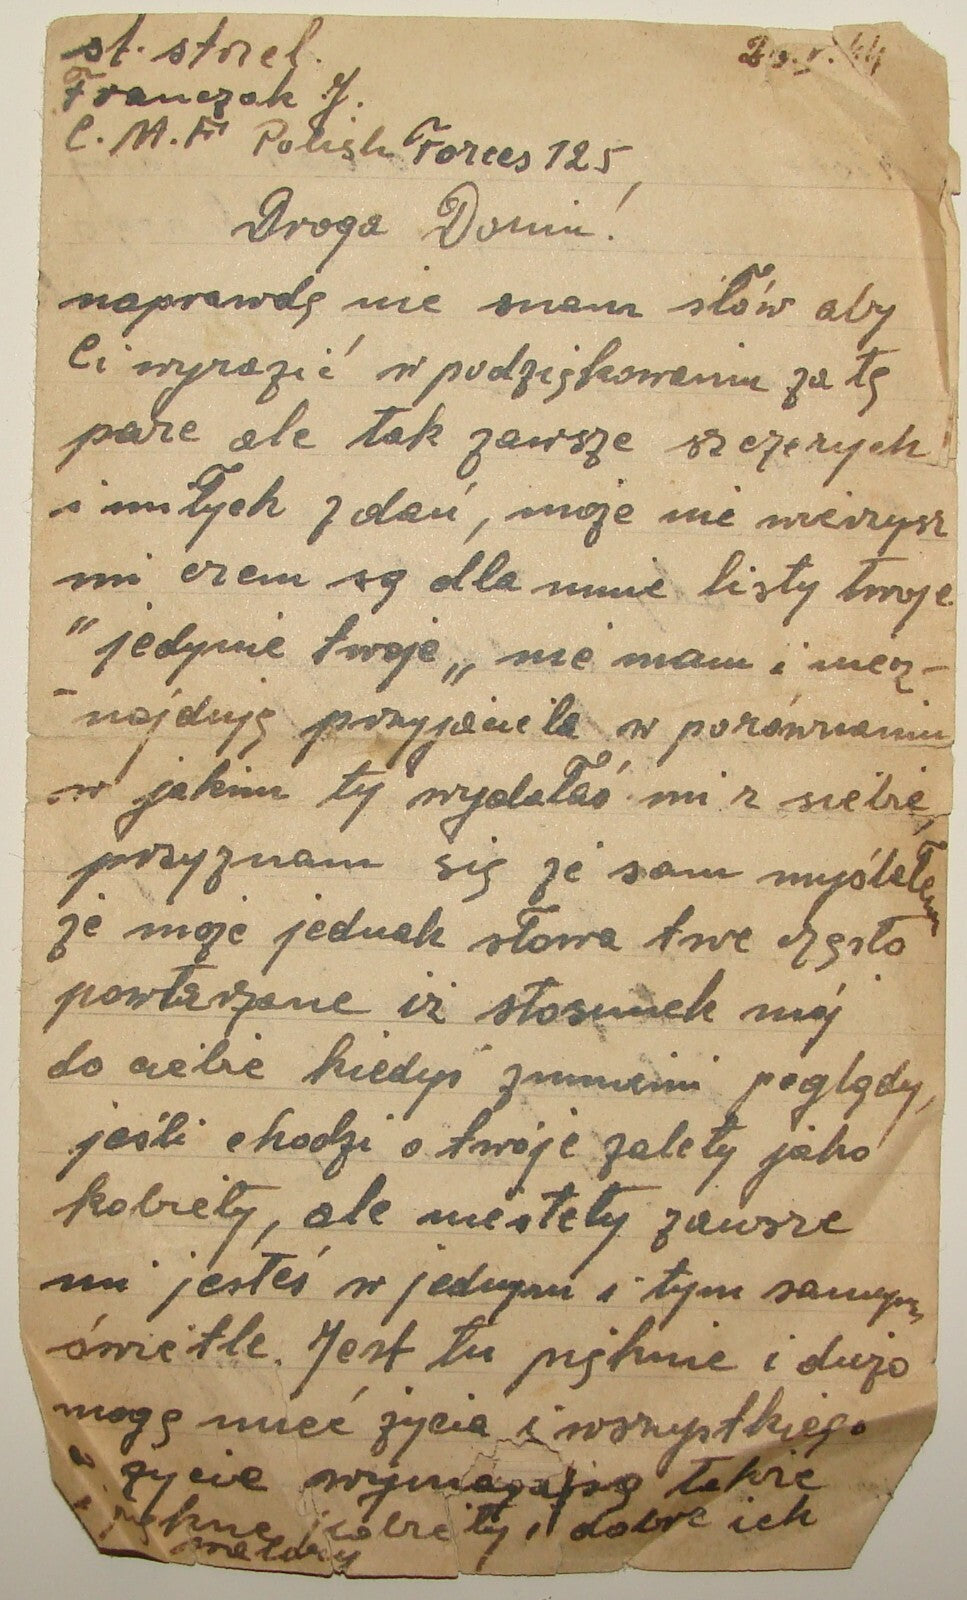 st. strzel.
Franczak J.
C.M.F Polish Forces 125
Droga Domin!
naprawdę nie znam słów aby
Ci wyrazić w podziękowaniu za tę
parę ale tak zawsze szczerych
i miłych zdań, może nie wierzysz
mi czem są dla mnie listy twoje
"jedynie twoje„ nie mam i niez-
-najduję przyjaciela w porównaniu
w jakim ty wydałaś mi z siebie,
przyznam się że sam myślałem
że może jednak słowa twe często
powtarzane iż stosunek mój
do ciebie kiedyś zmnieni poglądy,
jeśli chodzi o twoje zalety jako
kobiety, ale niestety zawsze
mi jesteś w jednym i tym samym
świetle. Jest tu pięknie i dużo
mogę mieć życia i wszystkiego
życie wymagają takie
piękne kobiety i dobre ich